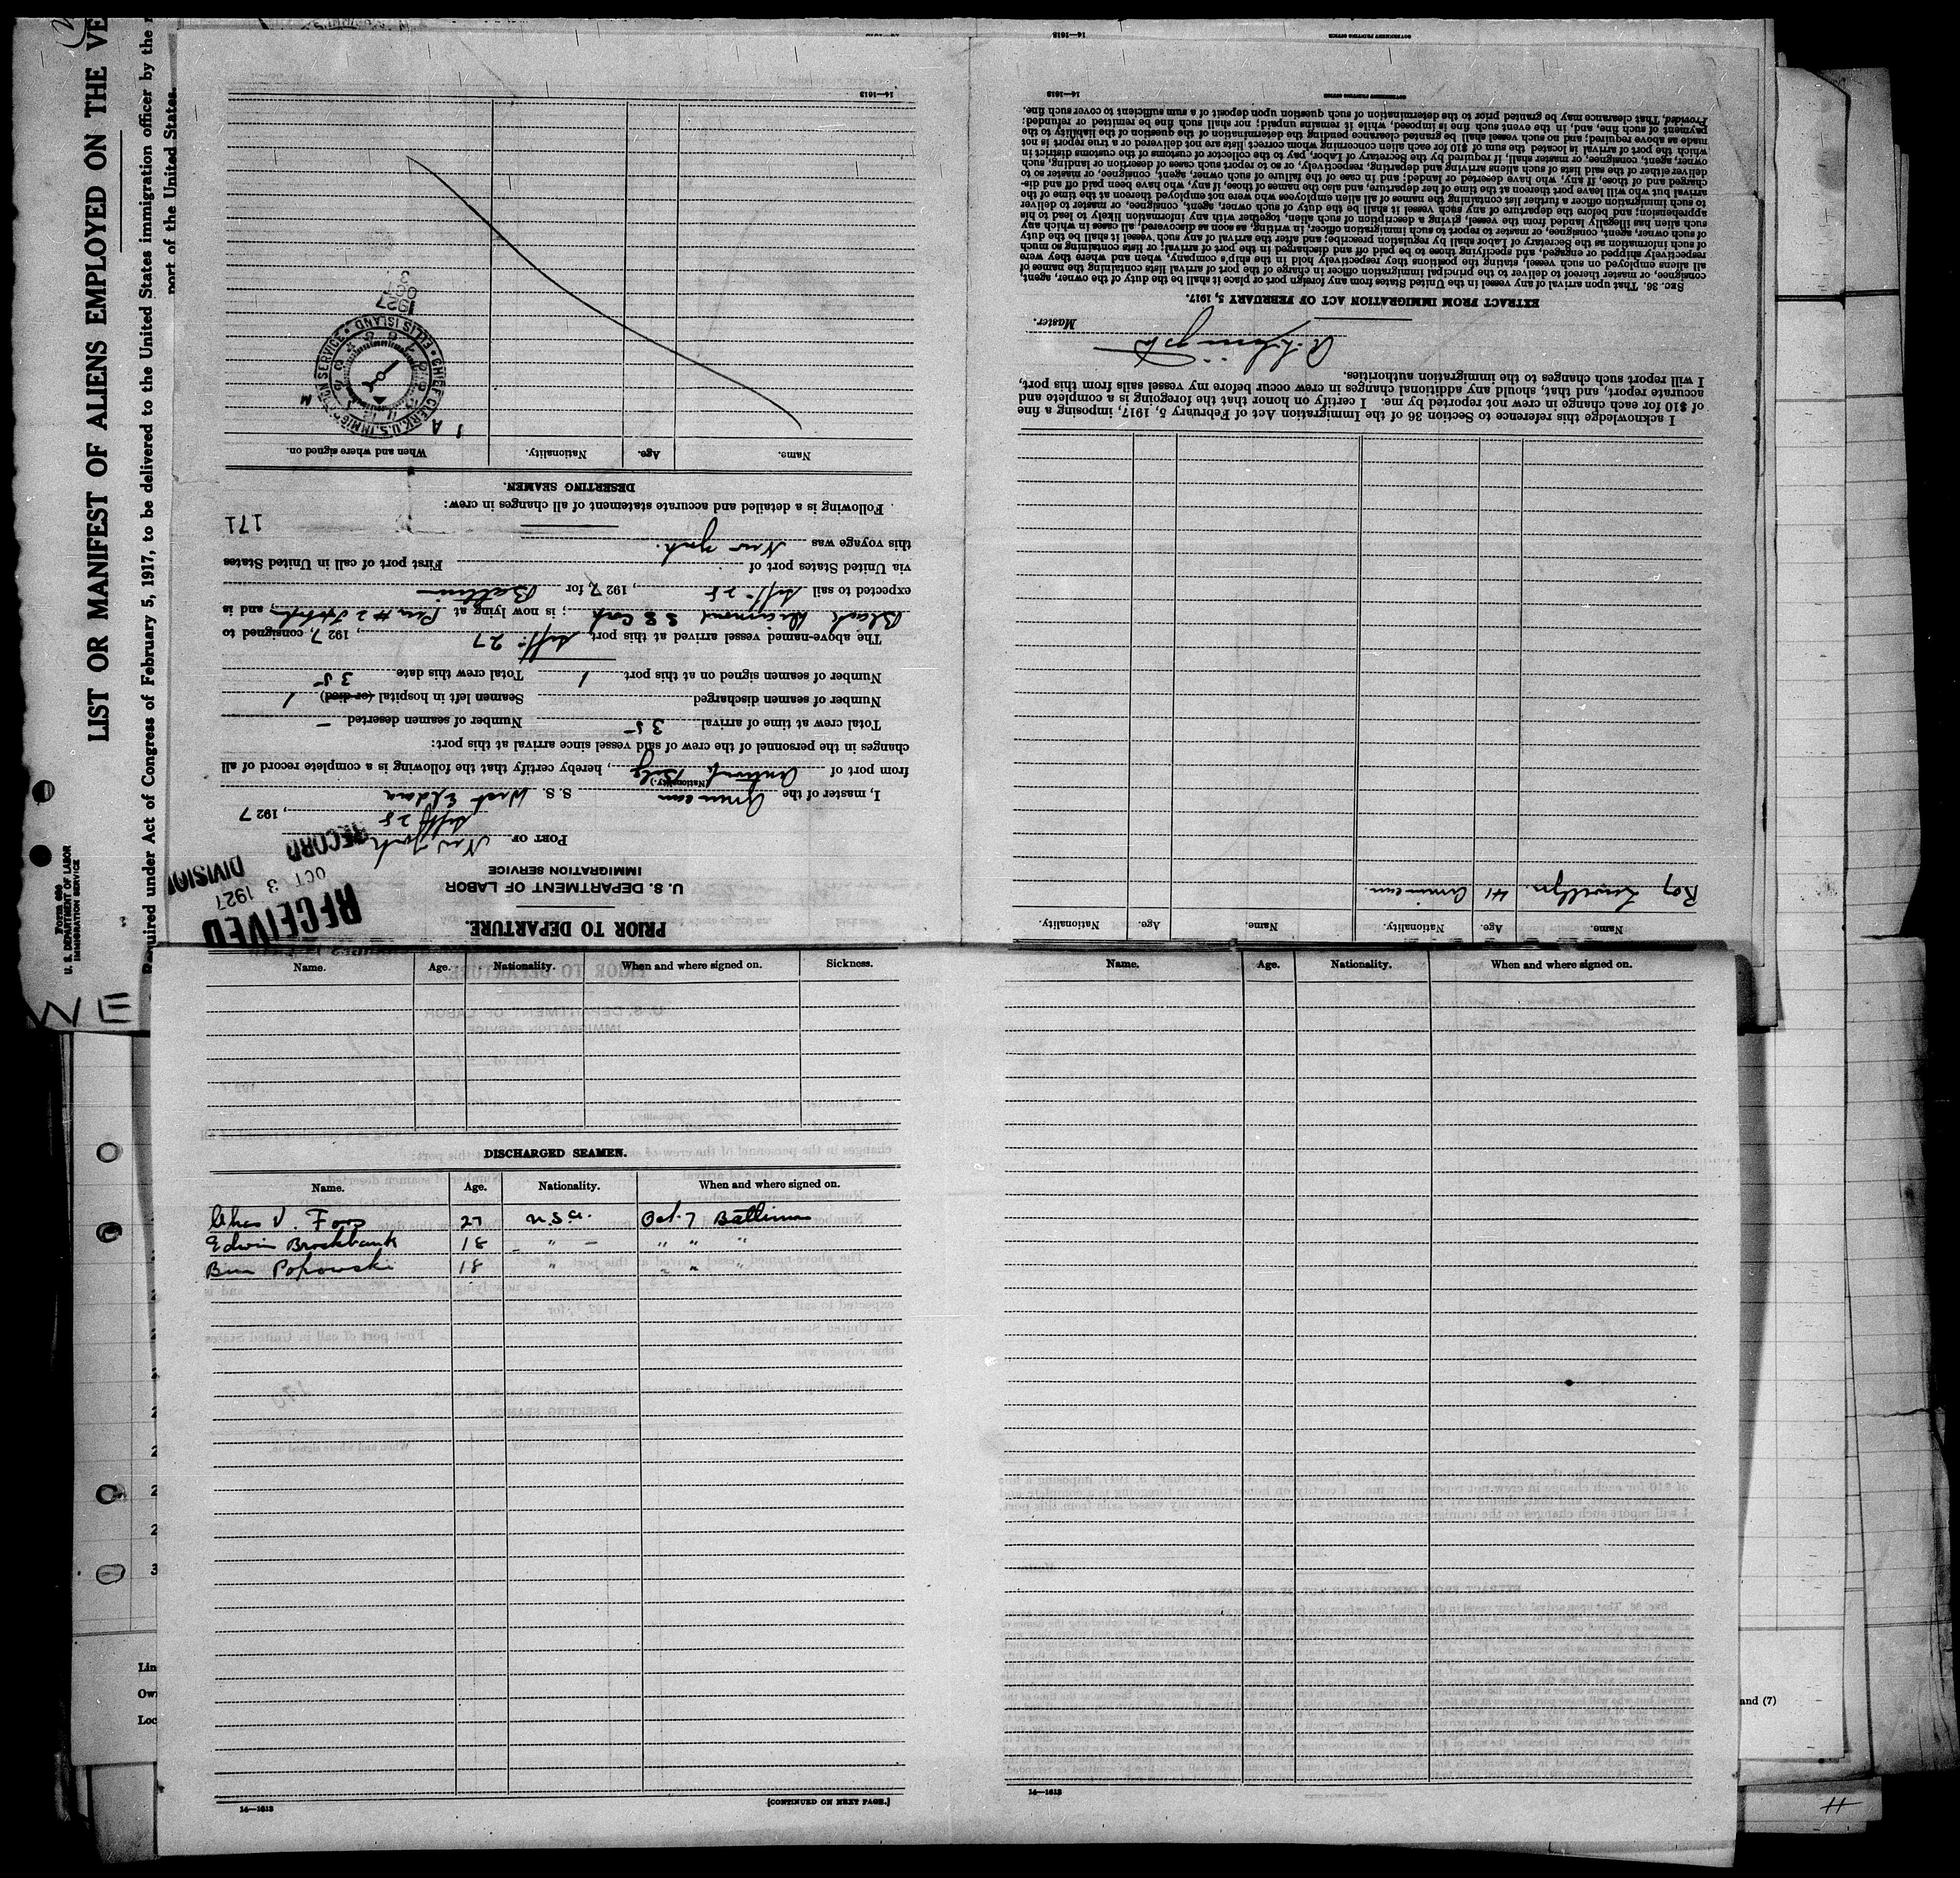 LIST OR MANIFEST OF ALIENS EMPLOYED ON THE VE
Required under Act of Congress of February 5, 1917, to be delivered to the United States immigration officer by the
port of the United States.
FORM 680
U. S. DEPARTMENT OF LABOR
IMMIGRATION SERVICE
PRIOR TO DEPARTURE.
RECEIVED
OCT 3 1927
RECORD DIVISION
U. S. DEPARTMENT OF LABOR
IMMIGRATION SERVICE
PORT OF New York
Sept 28, 1927
I, master of the American S. S. West Eldara
(Nationality.)
from port of Antwerp Belg, hereby certify that the following is a complete record of all
changes in the personnel of the crew of said vessel since arrival at this port:
Total crew at time of arrival 35 Number of seamen deserted —
Number of seamen discharged Seamen left in hospital (or died) 1
Number of seamen signed on at this port 1 Total crew this date 35
The above-named vessel arrived at this port Sept. 27, 1927, consigned to
Black Diamond S S Corp; is now lying at Pier # 2, and is
expected to sail Sept. 28, 1927, for
via United States port of First port of call in United States
this voyage was New York.
171
Following is a detailed and accurate statement of all changes in crew:
DESERTING SEAMEN.
Name. Age. Nationality. When and where signed on.
CHIEF CLERK, U.S. IMMIGRATION SERVICE • ELLIS ISLAND •
1927
14—1613
Name. Age. Nationality. Name. Age. Nationality.
Roy Lewellyn. 41 American.
I acknowledge this reference to Section 36 of the Immigration Act of February 5, 1917, imposing a fine
of $10 for each change in crew not reported by me. I certify on honor that the foregoing is a complete and
accurate report, and that, should any additional changes in crew occur before my vessel sails from this port,
I will report such changes to the immigration authorities.
Master.
EXTRACT FROM IMMIGRATION ACT OF FEBRUARY 5, 1917.
SEC. 36. That upon arrival of any vessel in the United States from any foreign port or place it shall be the duty of the owner, agent,
consignee, or master thereof to deliver to the principal immigration officer in charge of the port of arrival lists containing the names of
all aliens employed on such vessel, stating the positions they respectively hold in the ship's company, when and where they were
respectively shipped or engaged, and specifying those to be paid off and discharged in the port of arrival; or lists containing so much
of such information as the Secretary of Labor shall by regulation prescribe; and after the arrival of any such vessel it shall be the duty
of such owner, agent, consignee, or master to report to such immigration officer, in writing, as soon as discovered, all cases in which any
such alien has illegally landed from the vessel, giving a description of such alien, together with any information likely to lead to his
apprehension; and before the departure of any such vessel it shall be the duty of such owner, agent, consignee, or master to deliver
to such immigration officer a further list containing the names of all alien employees who were not employed thereon at the time of the
arrival but who will leave port thereon at the time of her departure, and also the names of those, if any, who have been paid off and dis-
charged and of those, if any, who have deserted or landed; and in case of the failure of such owner, agent, consignee, or master so to
deliver either of the said lists of such aliens arriving and departing, respectively, or so to report such cases of desertion or landing, such
owner, agent, consignee, or master shall, if required by the Secretary of Labor, pay to the collector of customs of the customs district in
which the port of arrival is located the sum of $10 for each alien concerning whom correct lists are not delivered or a true report is not
made as above required; and no such vessel shall be granted clearance pending the determination of the question of the liability to the
payment of such fine, and, in the event such fine is imposed, while it remains unpaid; nor shall such fine be remitted or refunded:
Provided, That clearance may be granted prior to the determination of such question upon deposit of a sum sufficient to cover such fine.
14—1613 GOVERNMENT PRINTING OFFICE
14—1613 GOVERNMENT PRINTING OFFICE
Name. Age. Nationality. When and where signed on. Sickness.
DISCHARGED SEAMEN.
Name. Age. Nationality. When and where signed on.
Chas V. Foos 27 U.S.A. Oct. 7 Baltimore
Edwin Brockbank 18 " " " "
Ben Popowski 18 " " " "
14—1613 [CONTINUED ON NEXT PAGE.]
Name. Age. Nationality. When and where signed on.
14—1613
Lin
Own
Loc
and (7)
11